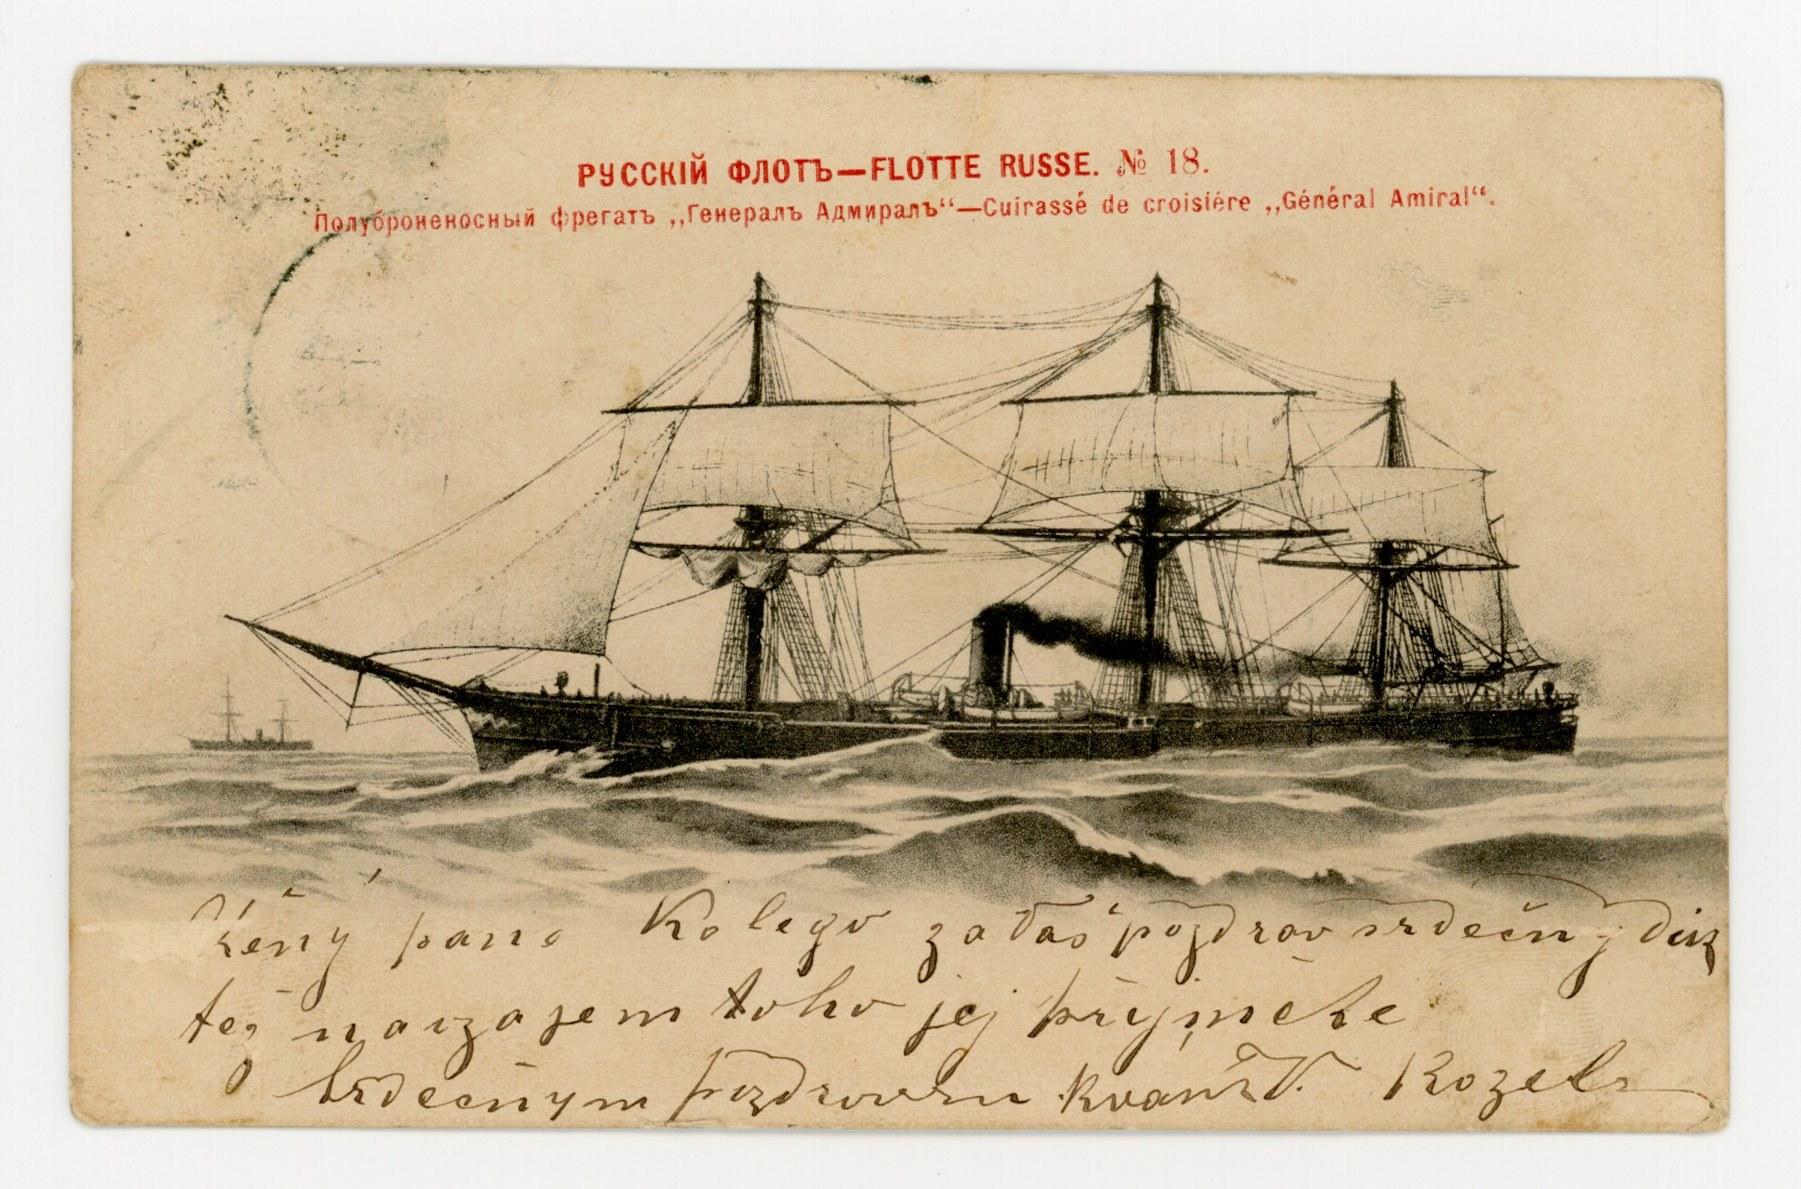 РУССКІЙ ФЛОТЪ—FLOTTE RUSSE. № 18.
Полуброненосный фрегатъ „Генералъ Адмиралъ“—Cuirassé de croisière „Général Amiral“.
pane Kolego za pozdrav srdečný
naizajem toho jej přijměte
Srdečným V. Kozel